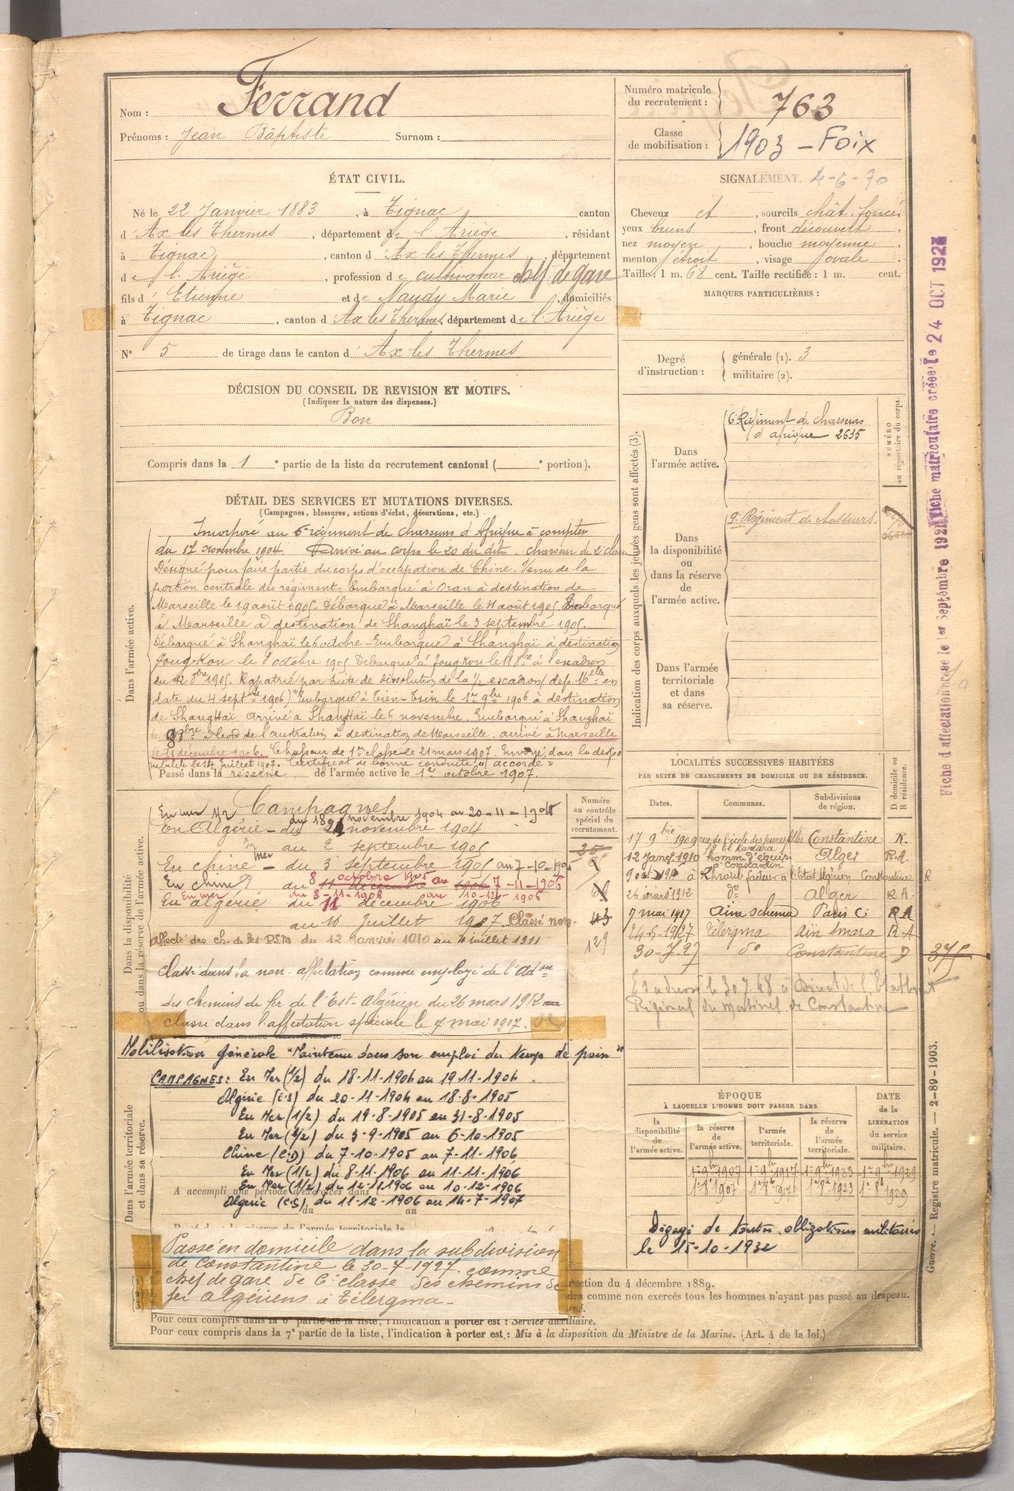 Nom : Ferrand
Prénoms : Jean Baptiste Surnom :
Numéro matricule du recrutement : 763
Classe de mobilisation : 1903 - Foix
ÉTAT CIVIL.
Né le 22 Janvier 1883, à Tignac canton
d'Ax les Thermes, département de l'Ariège, résidant
à Tignac, canton d'Ax les Thermes, département
de l'Ariège, profession de cultivateur chef de gare
fils d'Etienne et de Naudy Marie, domiciliés
à Tignac, canton d'Ax les Thermes, département de l'Ariège
N° 5 de tirage dans le canton d'Ax les Thermes
SIGNALEMENT. 4-6-70
Cheveux ct, sourcils chât. foncés
yeux bruns, front découvert
nez moyen, bouche moyenne
menton droit, visage ovale
Taille : 1 m. 68 cent. Taille rectifiée : 1 m. cent.
MARQUES PARTICULIÈRES :
Degré d'instruction : générale (1). 3
militaire (2).
DÉCISION DU CONSEIL DE REVISION ET MOTIFS.
(Indiquer la nature des dispenses.)
Bon
Compris dans la 1e partie de la liste du recrutement cantonal ( e portion).
DÉTAIL DES SERVICES ET MUTATIONS DIVERSES.
(Campagnes, blessures, actions d'éclat, décorations, etc.)
Dans l'armée active.
Incorporé au 6e régiment de chasseurs d'Afrique à compter
du 17 novembre 1904. Arrivé au corps le 20 du dit chasseur de 2e classe
Désigné pour faire partie du corps d'occupation de Chine. Venu de la
portion centrale du régiment. Embarqué à Oran à destination de
Marseille le 19 août 1905. Débarqué à Marseille le août 1905. Embarqué
à Marseille à destination de Shanghaï le 3 septembre 1905.
Débarqué à Shanghaï le 6 octobre. Embarqué à Shanghaï à destination
le 8 octobre 1905. Débarqué à le
1905. Rapatrié par suite de dissolution de la 1/2 escadron
date du 11 sept 1906) Embarqué à Tien-Tsin le 1er 9bre 1906 à destination
de Shanghaï arrivé à Shanghaï le 6 novembre. Embarqué à Shanghaï
à destination de Marseille. arrivé à Marseille
le 11 décembre 1906. Chasseur de 1re classe le 21 mars 1907. Envoyé dans la dispo
nibilité le 14 juillet 1907. Certificat de bonne conduite "accordé"
Passé dans la réserve de l'armée active le 1er octobre 1907.
Indication des corps auxquels les jeunes gens sont affectés (3).
NUMÉRO au répertoire du corps.
Dans l'armée active.
6 Régiment de chasseurs
d'afrique 2635
Dans la disponibilité ou dans la réserve de l'armée active.
9e Régiment de chasseurs.
Dans l'armée territoriale et dans sa réserve.
Dans la disponibilité ou dans la réserve de l'armée active.
Campagnes
En Algérie - du novembre 1904
au 2 septembre 1905
En chine - du 3 septembre 1905 au 7-10-1905
En chine du 8 octobre 1905 au 7-11-1906
En mer 8-11-1906 au 10-12-1906
En algérie du 11 décembre 1906
au 14 Juillet 1907. Classé non-
affecté des ch. de fer du 12 janvier 1910 au juillet 1911
Classé dans la non-affectation comme employé de l'Adon
des chemins de fer de l'Est-Algérien du 26 mars 1912 au
classé dans l'affectation spéciale le 7 mai 1917.
Numéro au contrôle spécial du recrutement.
129
Mobilisation générale "Maintenu dans son emploi du temps de paix"
CAMPAGNES : En Mer (1/2) du 18-11-1904 au 19-11-1904
Algérie (C.S) du 20-11-1904 au 18-8-1905
En Mer (1/2) du 19-8-1905 au 31-8-1905
En Mer (1/2) du 3-9-1905 au 6-10-1905
Chine (C.D) du 7-10-1905 au 7-11-1906
En Mer (1/2) du 8-11-1906 au 11-11-1906
En Mer (1/2) du 12-11-1906 au 10-12-1906
Algérie (C.S) du 11-12-1906 au 14-7-1907
Dans l'armée territoriale et dans sa réserve.
A accompli une période d'exercices dans l
du au
Passé en domicile dans la subdivision
de Constantine le 30-7-1927. comme
chef de gare de 6e classe des chemins de
fer algériens à Télergma -
LOCALITÉS SUCCESSIVES HABITÉES
PAR SUITE DE CHANGEMENTS DE DOMICILE OU DE RÉSIDENCE.
Dates. Communes. Subdivisions de région. D domicile ou R résidence.
17 9bre 1909 Constantine R.
12 Janv. 1910 homme d'équipe Alger R.A.
Khroub facteur à l'Est Algérien Constantine R
26 mars 1912 do Alger R A
7 mai 1917 Aïn Paris Ci RA
24-5-1927 Télergma Aïn Smara R A
30-7-27 do Constantine D 375
le 30 7 48 à
Régional du Matériel de Constantine
ÉPOQUE
À LAQUELLE L'HOMME DOIT PASSER DANS
la disponibilité de l'armée active. la réserve de l'armée active. l'armée territoriale. la réserve de l'armée territoriale.
DATE de la LIBÉRATION du service militaire.
Dégagé de toutes obligations militaires
le 15-10-1932
ruction du 4 décembre 1889.
dra comme non exercés tous les hommes n'ayant pas passé au drapeau.
Pour ceux compris dans la 6e partie de la liste, l'indication à porter est : Service auxiliaire.
Pour ceux compris dans la 7e partie de la liste, l'indication à porter est : Mis à la disposition du Ministre de la Marine. (Art. 4 de la loi.)
Guerre. — Registre matricule. — 2-89-1903.
Fiche matriculaire créée le 24 OCT 192